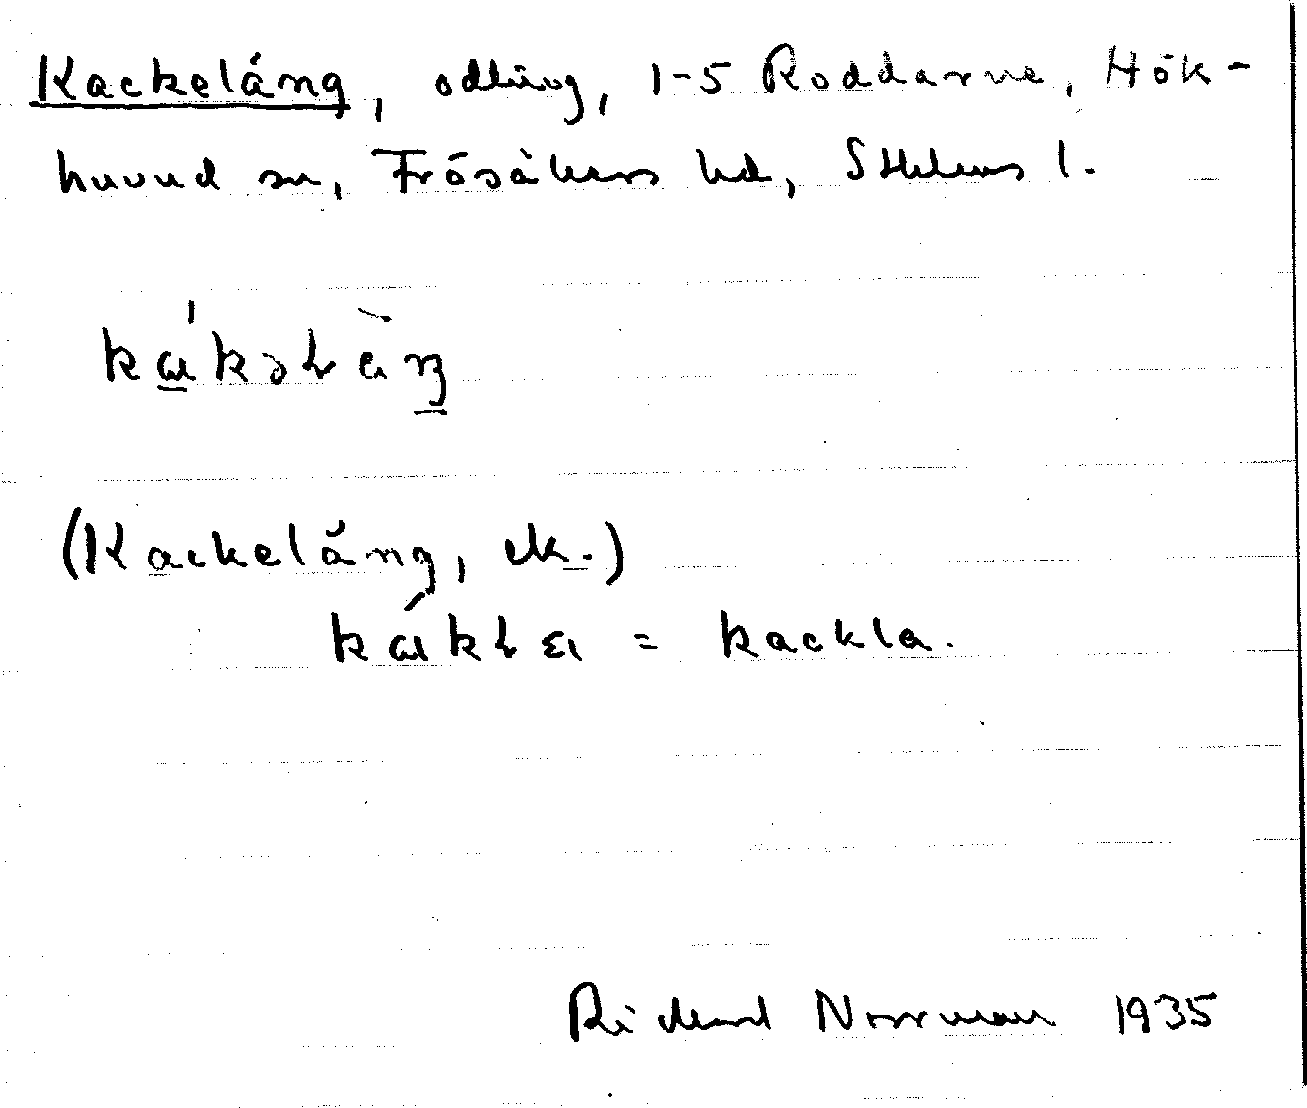 Kackeläng, odling, 1-5 Roddarne, Hök-
huvud sn, Frösåkers hd, Sthlms l.
(Kackeläng, ek.)
= kackla.
Richard Norrman 1935